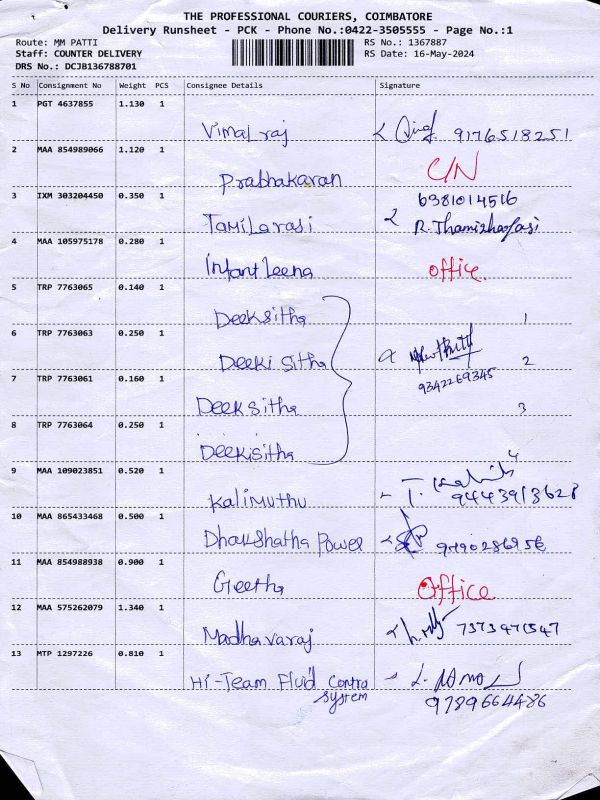 THE PROFESSIONAL COURIERS, COIMBATORE
Delivery Runsheet - PCK - Phone No.:0422-3505555 - Page No.:1
Route: MM PATTI
RS No.: 1367887
Staff: COUNTER DELIVERY
RS Date: 16-May-2024
DRS No.: DCJB136788701
S No Consignment No Weight PCS Consignee Details Signature
1 PGT 4637855 1.130 1
Vimal raj 9176518251
2 MAA 854989066 1.120 1
Prabhakaran C/N
3 IXM 303204450 0.350 1
6381014516
Tamilarasi R. Thamizharasi
4 MAA 105975178 0.280 1
Infant Leena office
5 TRP 7763065 0.140 1
Deeksitha 1
6 TRP 7763063 0.250 1
Deeki sitha 2
9342269345
7 TRP 7763061 0.160 1
Deeksitha 3
8 TRP 7763064 0.250 1
Deekisitha 4
9 MAA 109023851 0.520 1
Kalimuthu T.
9443913628
10 MAA 865433468 0.500 1
Dhakshatha Power
11 MAA 854988938 0.900 1
Geetha Office
12 MAA 575262079 1.340 1
Madhavaraj 7373471547
13 MTP 1297226 0.810 1
Hi-Team Fluid Contro
System 9789664486